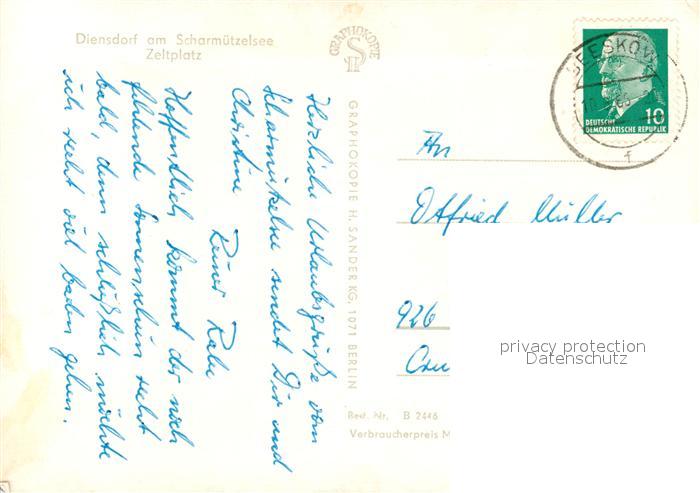 Diensdorf am Scharmützelsee
Zeltplatz
GRAPHOKOPIE
H S
BEESKOW
DEUTSCHE
DEMOKRATISCHE REPUBLIK
10
Herzliche Urlaubsgrüße vom
Scharmützelsee sendet Dir und
Christine
Rainer Rabe
Hoffentlich kommt der noch
fehlende Sonnenschein recht
bald, denn schließlich möchte
ich recht viel baden gehen.
GRAPHOKOPIE H. SANDER KG, 1071 BERLIN
An
Otfried Müller
926
privacy protection
Datenschutz
Best. Nr. B 2446
Verbraucherpreis M